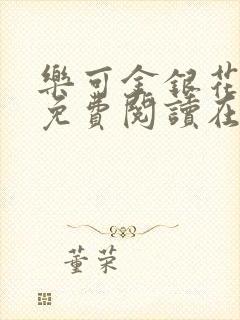 樂可金銀花
免費閱讀在
董荣